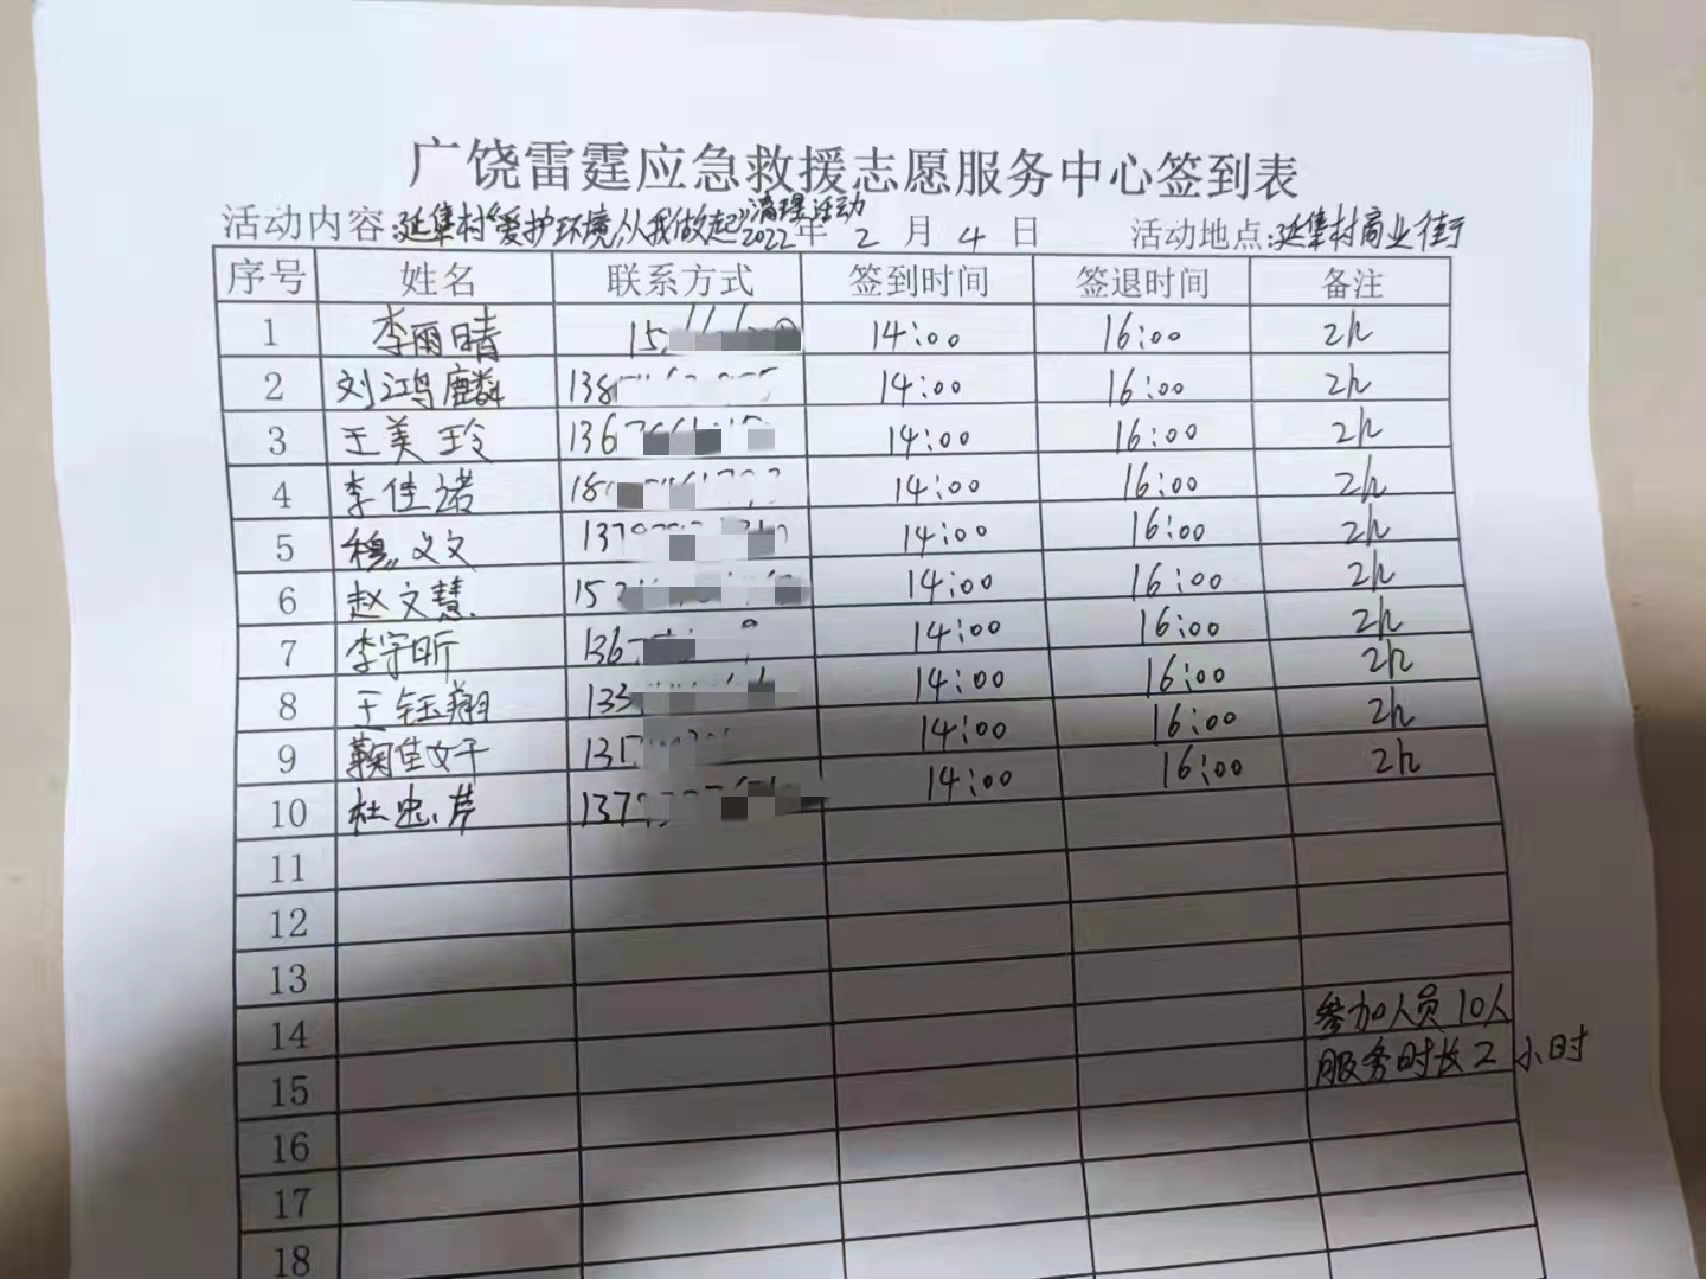 广饶雷霆应急救援志愿服务中心签到表
活动内容:延集村“爱护环境,从我做起”清理活动 2022年 2 月 4 日 活动地点:延集村商业街
序号 姓名 联系方式 签到时间 签退时间 备注
1 李丽晴 15 14:00 16:00 2h
2 刘鸿麟 138 14:00 16:00 2h
3 王美玲 136 14:00 16:00 2h
4 李佳诺 18 14:00 16:00 2h
5 穆义文 137 14:00 16:00 2h
6 赵文慧 152 14:00 16:00 2h
7 李宇昕 136 14:00 16:00 2h
8 王钰翔 133 14:00 16:00 2h
9 鞠佳妤 13 14:00 16:00 2h
10 杜忠芹 137 14:00 16:00 2h
11
12
13
14 参加人员10人
15 服务时长2小时
16
17
18